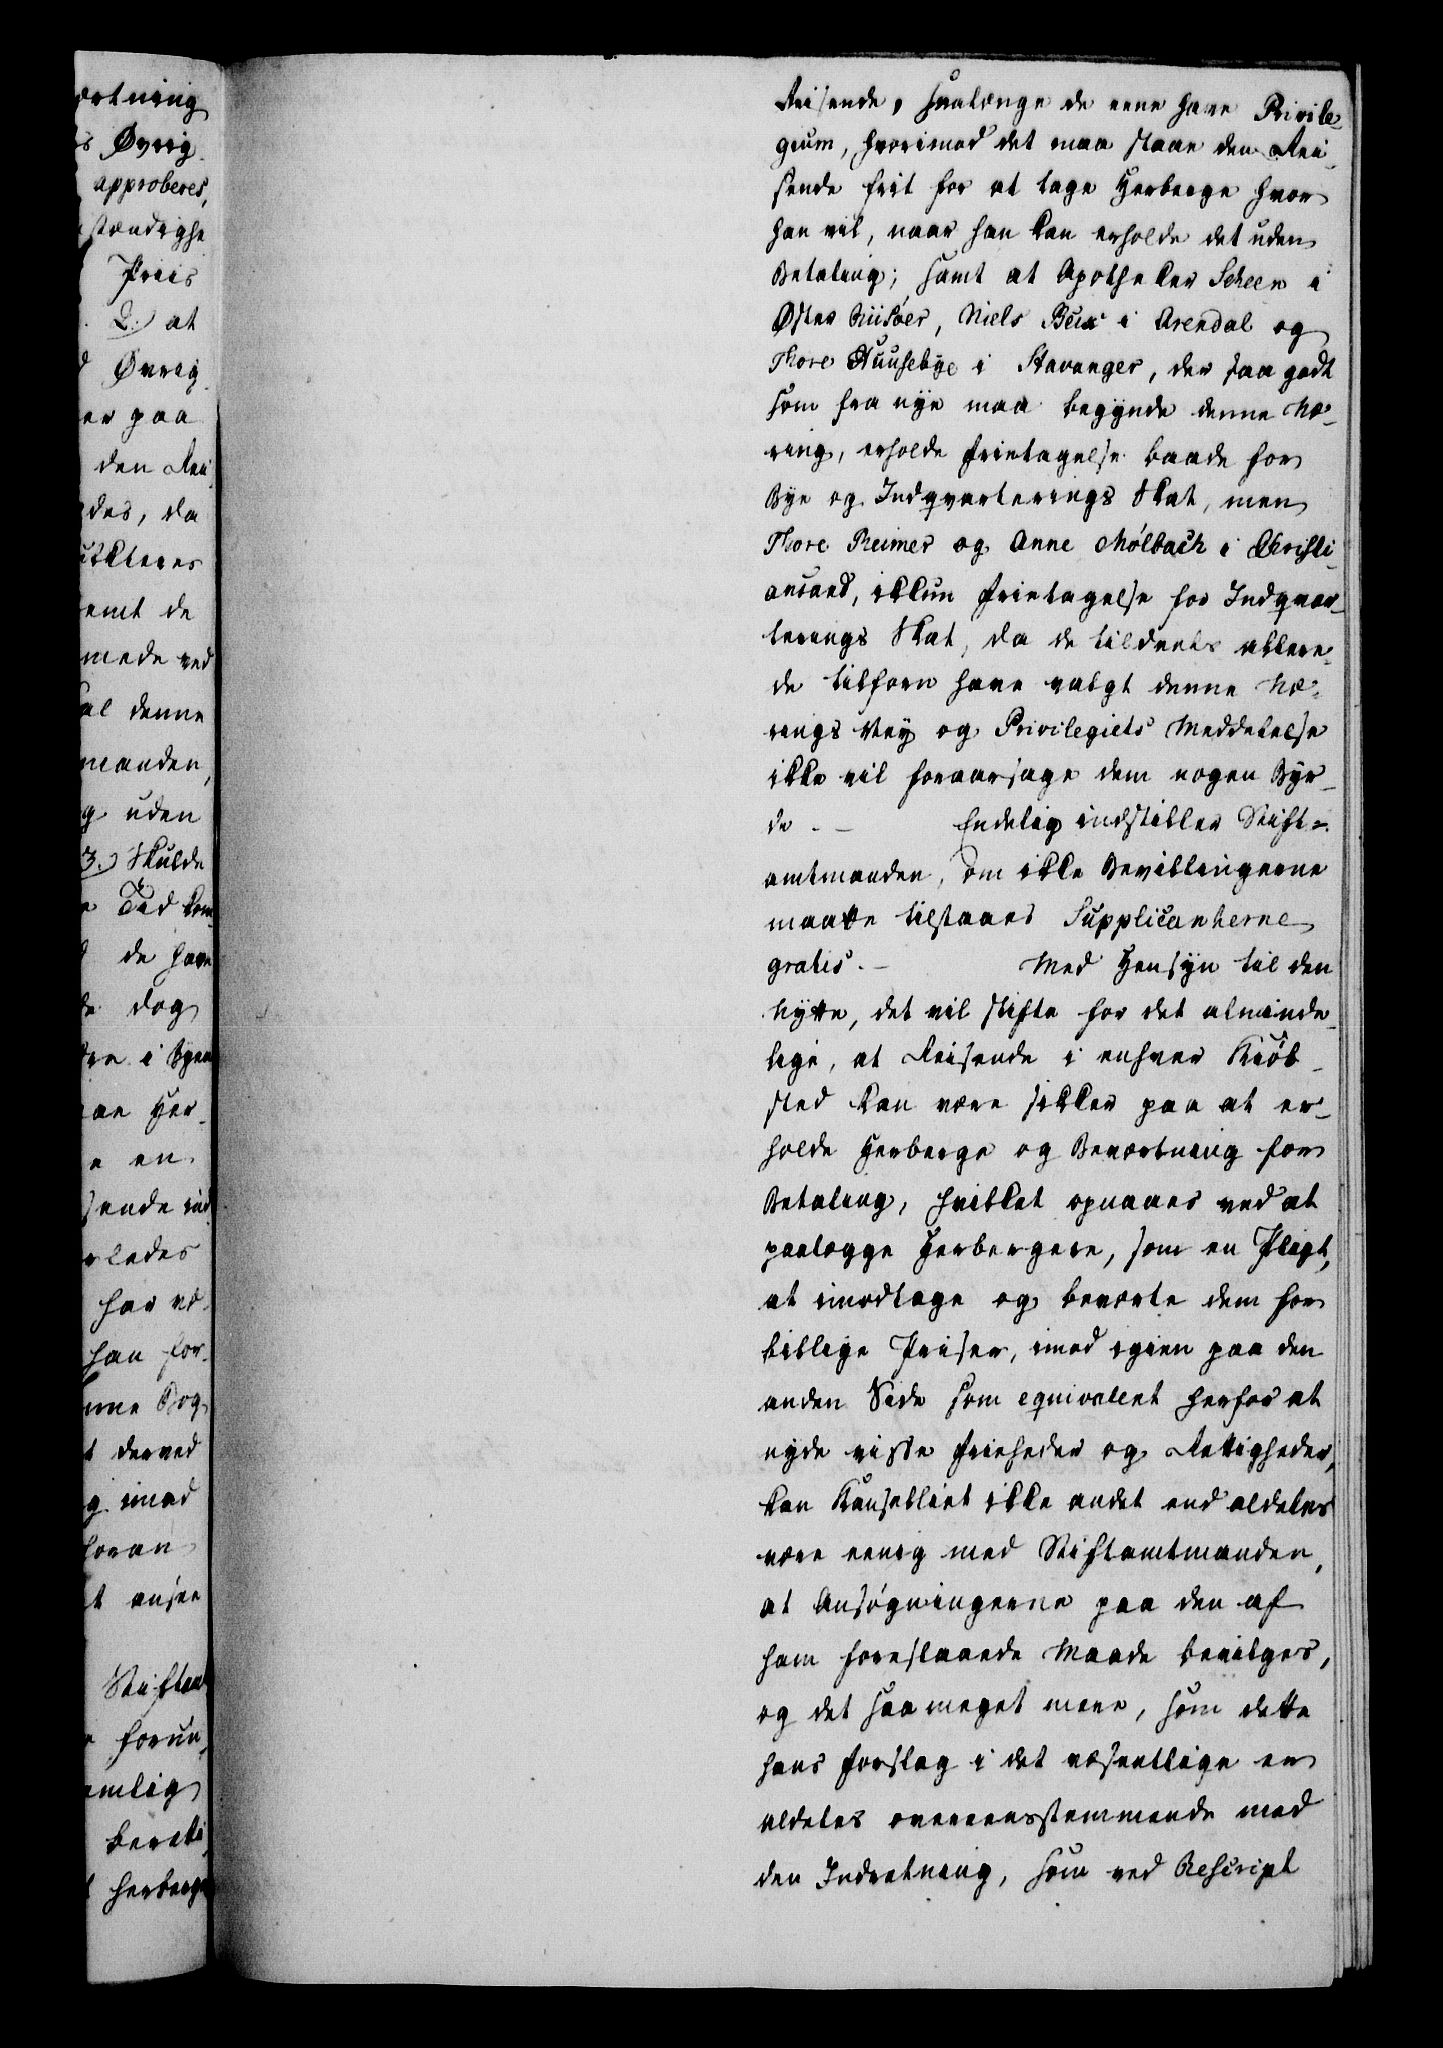 ortning
s Øvrig
approberes,
stændighe
Priis
2.) at
d Øvrig
er paa
den Rei
des, da
emt de
mede ved
al denne
manden,
g uden
3.) Skulde
Tid kom
de have
de dog
re i Byen
aae Her-
e en
sende ind
rledes
har væ-
han for-
nne Bog
t derved
g imod
foran
t ansee
Stiftam
forun,
emlig
beretti
t herberge
Reisende, saalænge de eene have Privile-
gium, hvorimod det maa staae den Rei-
sende frit for at tage Herberge hvor
han vil, naar han kan erholde det uden
Betaling; samt at Apotheker Scheen i
Øster Riisöer, Niels Bux i Arendal og
Thore Huusebye i Stavanger, der saa godt
som fra nye maa begynde denne Næ-
ring, erholde Frietagelse baade for
Bye og Indqvarterings Skat, men
Thore Reimer og Anne Mölbach i Christi-
ansand, ikkun Frietagelse for Indqvar-
terings Skat, da de tildeels allere-
de tilforn have valgt denne Næ-
rings Vey og Privilegiets Meddelelse
ikke vil foraarsage dem nogen Byr-
de. - Endelig indstiller Stift-
amtmanden, om ikke Bevillingerne
maatte tilstaaes Supplicanterne
gratis. - Med Hensyn til den
Nytte, det vil stifte for det alminde-
lige, at Reisende i enhver Kiöb-
sted kan være sikker paa at er-
holde Herberge og Beværtning for
Betaling, hvilket opnaaes ved at
paalægge Herbergere, som en Pligt,
at imodtage og beværte dem for
billige Priser, imod igien paa den
anden Side som equivalent herfor at
nyde visse Frieheder og Rettigheder,
kan Kanselliet ikke andet end aldeles
være eenig med Stiftamtmanden,
at Ansøgningerne paa den af
ham foreslaaede Maade bevilges,
og det saa meget mere, som dette
hans Forslag i det væsentlige er
aldeles overeensstemmende med
den Indretning, som ved Rescript